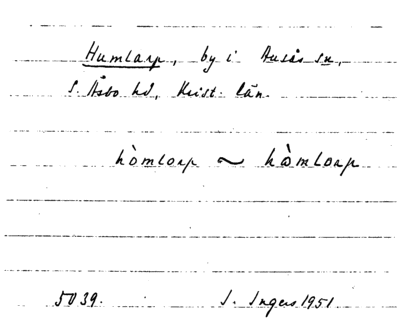 Humlarp, by i Ausås sn,
S. Åsbo hd, Krist. län.
hòmlarp ~ hå̀mlarp
5039. I. Ingers 1951.